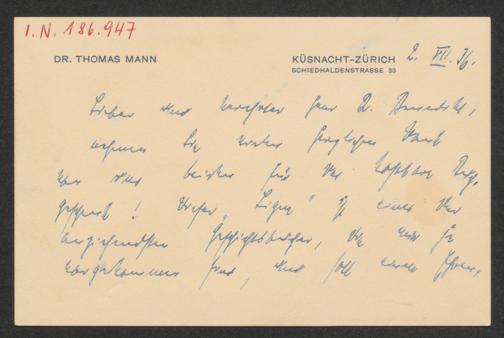 I. N. 186.947
DR. THOMAS MANN
KÜSNACHT-ZÜRICH
SCHIEDHALDENSTRASSE 33
2. VII. 36.
Lieber und verehrter Herr Dr.
nehmen Sie vielen herzlichen Dank
von uns beiden für das kostbare
Geschenk! Dieser ist eines der
anziehendsten Geschichtsbücher, die mir je
vorgekommen sind, und soll einen